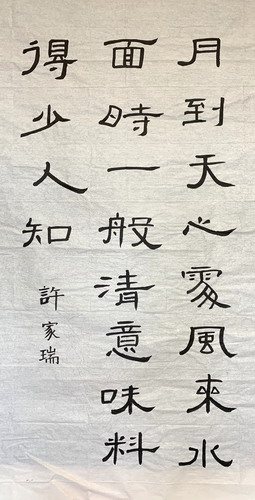 月到天心處風來水
面時一般清意味料
得少人知
許家瑞